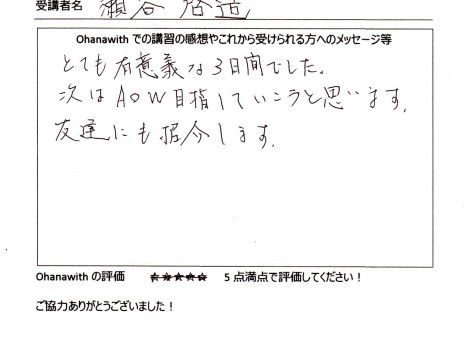 受講者名 瀬谷 啓道
Ohanawith での講習の感想やこれから受けられる方へのメッセージ等
とても有意義な3日間でした。
次はAOW目指していこうと思います。
友達にも紹介します。
Ohanawith の評価 ★★★★★ 5点満点で評価してください！
ご協力ありがとうございました！